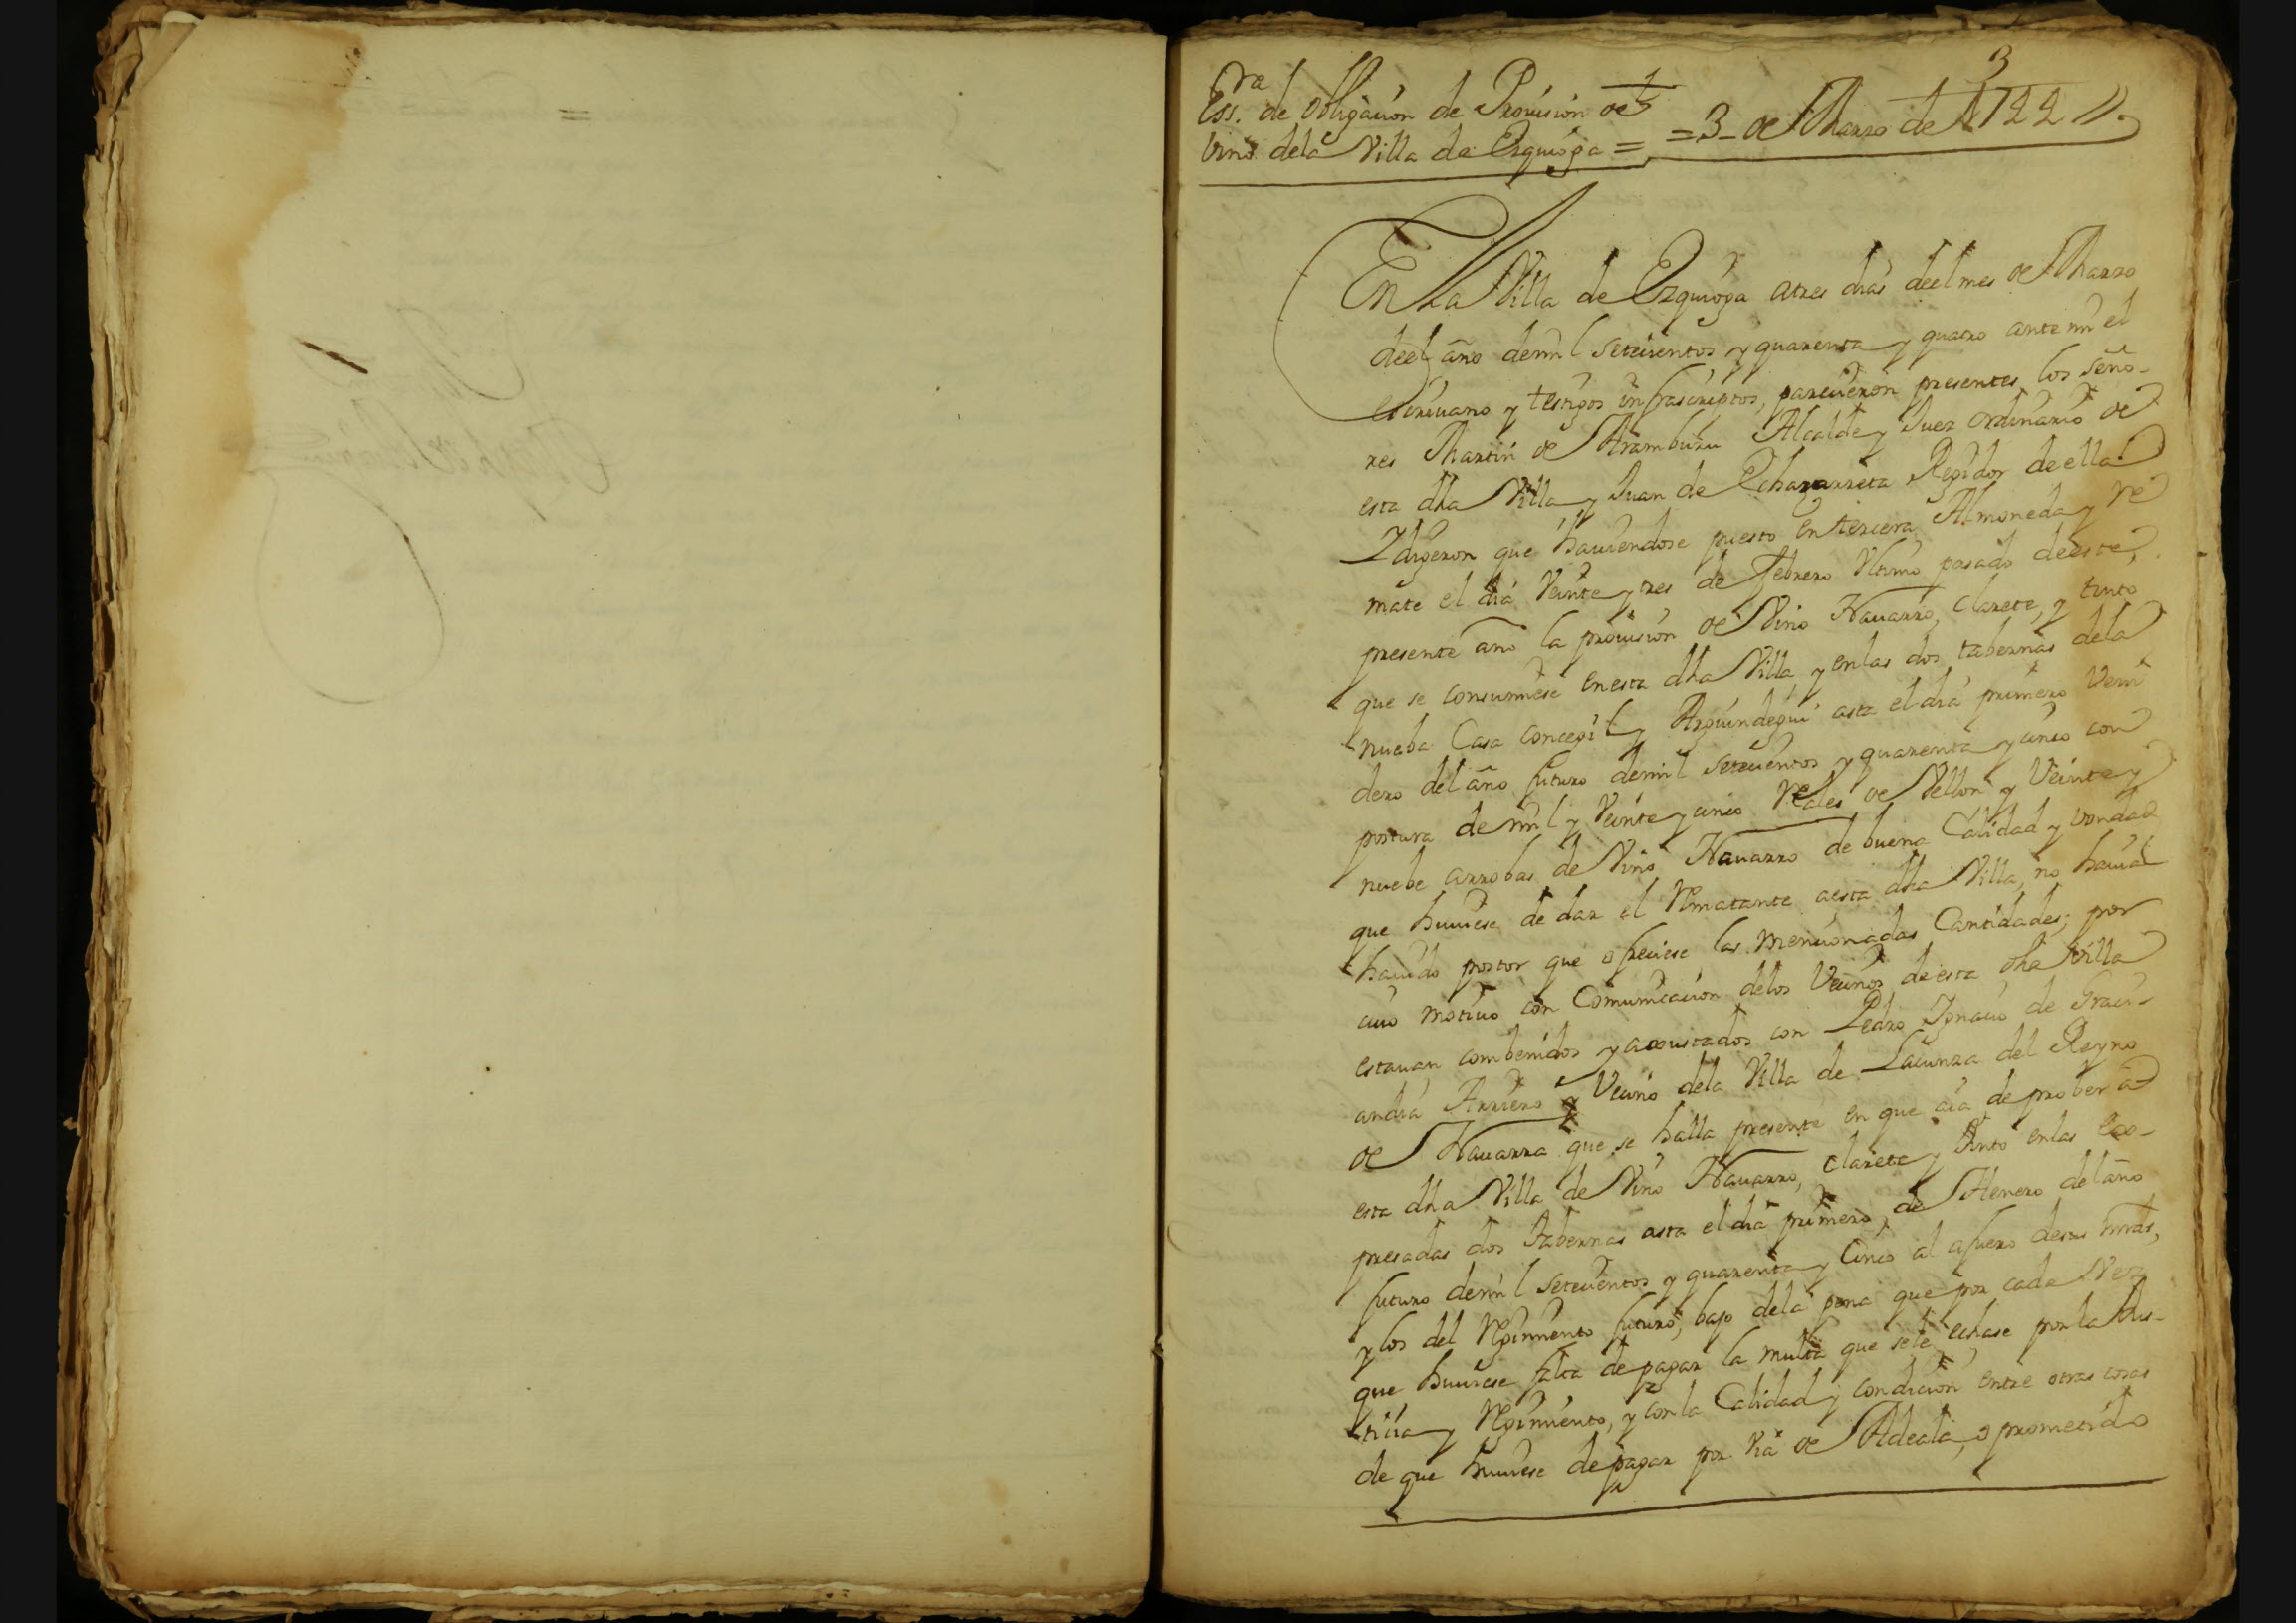 3
Ess.ra de obligaçion de Provision de
vino dela Villa de Ezquioga = = 3 de Marzo de 1744 //.
En La Villa de Ezquioga atres dias deel mes de Marzo
deel año demil setecientos y quarenta y quatro ante mi el
escriuano y testigos infrascriptos, parecieron presentes los seño-
res Martin de Aramburu Alcalde y Juez ordinario de
esta dha Villa y Juan de Echazarreta Regidor de ella
Y dixeron que hauiendose puesto en tercera Almoneda y re
mate el dia Veinte y tres de Febrero Vltimo pasado deeste,
presente año la prouision de Vino Nauarro, Clarete, y tinto
que se consumiese enesta dha Villa, y enlas dos tabernas dela
nueba Casa concegil y Arguindegui asta el dia primero Veni
dero del año futuro demil setecientos y quarenta y cinco con
postura de mil y Veinte y cinco Reales de Vellon y Veinte y
nuebe arrobas de Vino Nauarro de buena Calidad y vondad
que huuiese de dar el Rematante aesta dha Villa, no hauia
hauido postor que ofreciese las mencionadas Cantidades; por
cuio motiuo con Comunicacion delos Vecinos de esta dha Villa
estauan combenidos y aoustados con Pedro Ignacio de Graci-
andia Arriero y Vecino dela Villa de Lacunza del Reyno
de Nauarra que se halla presente en que aia de prober a
esta dha Villa de Vino Nauarro, Clarete y tinto enlas Exo-
presadas dos Tabernas asta el dia primero de Henero del año
futuro demil setecientos y quarenta y Cinco al afuero desus mrds,
y los del Regimiento futuro, bajo dela pena que por cada Vez
que huuiese falta de pagar la multa que sele echase por la Jus-
ticia y Regimiento, y con la Calidad y condicion entre otras cosas
de que huuiese de pagar por Via de Adeala, o prometido